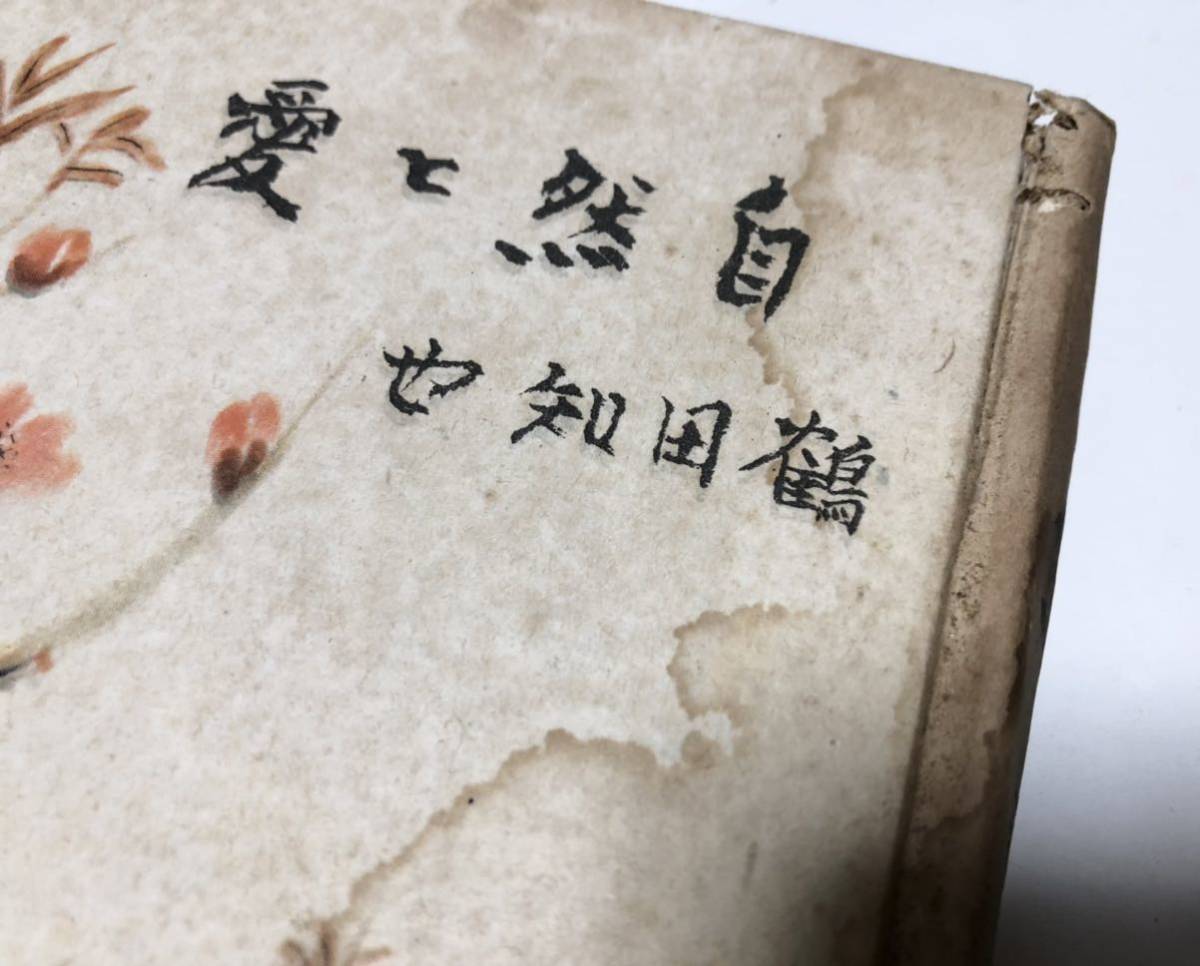 自然と愛
鶴田知也